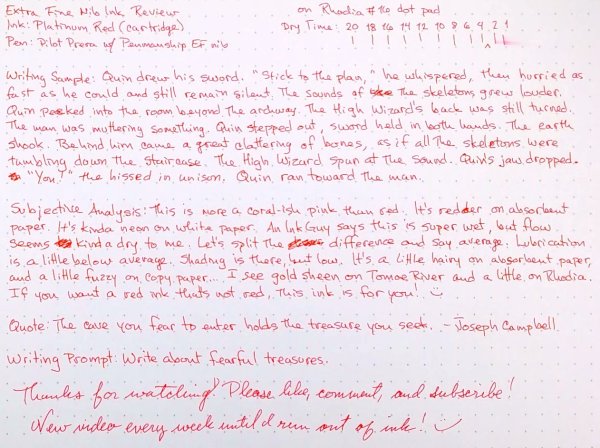 Extra Fine Nib Ink Review
on Rhodia #16 dot pad
Ink: Platinum Red (cartridge)
Dry Time: 20 18 16 14 12 10 8 6 4 2 1
Pen: Pilot Prera w/ Penmanship EF nib
Writing Sample: Quin drew his sword. "Stick to the plan," he whispered, then hurried as
fast as he could and still remain silent. The sounds of the skeletons grew louder.
Quin peeked into the room beyond the archway. The High Wizard's back was still turned.
The man was muttering something. Quin stepped out, sword held in both hands. The earth
shook. Behind him came a great clattering of bones, as if all the skeletons were
tumbling down the staircase. The High Wizard spun at the sound. Quin's jaw dropped.
"You!" the hissed in unison. Quin ran toward the man.
Subjective Analysis: This is more a coral-ish pink than red. It's redder on absorbent
paper. It's kinda neon on white paper. An Ink Guy says this is super wet, but flow
seems kinda dry to me. Let's split the difference and say average. Lubrication
is a little below average. Shading is there, but low. It's a little hairy on absorbent paper,
and a little fuzzy on copy paper.... I see gold sheen on Tomoe River and a little on Rhodia.
If you want a red ink that's not red, this ink is for you! :)
Quote: The cave you fear to enter holds the treasure you seek. - Joseph Campbell
Writing Prompt: Write about fearful treasures.
Thanks for watching! Please like, comment, and subscribe!
New video every week until I run out of ink! :)